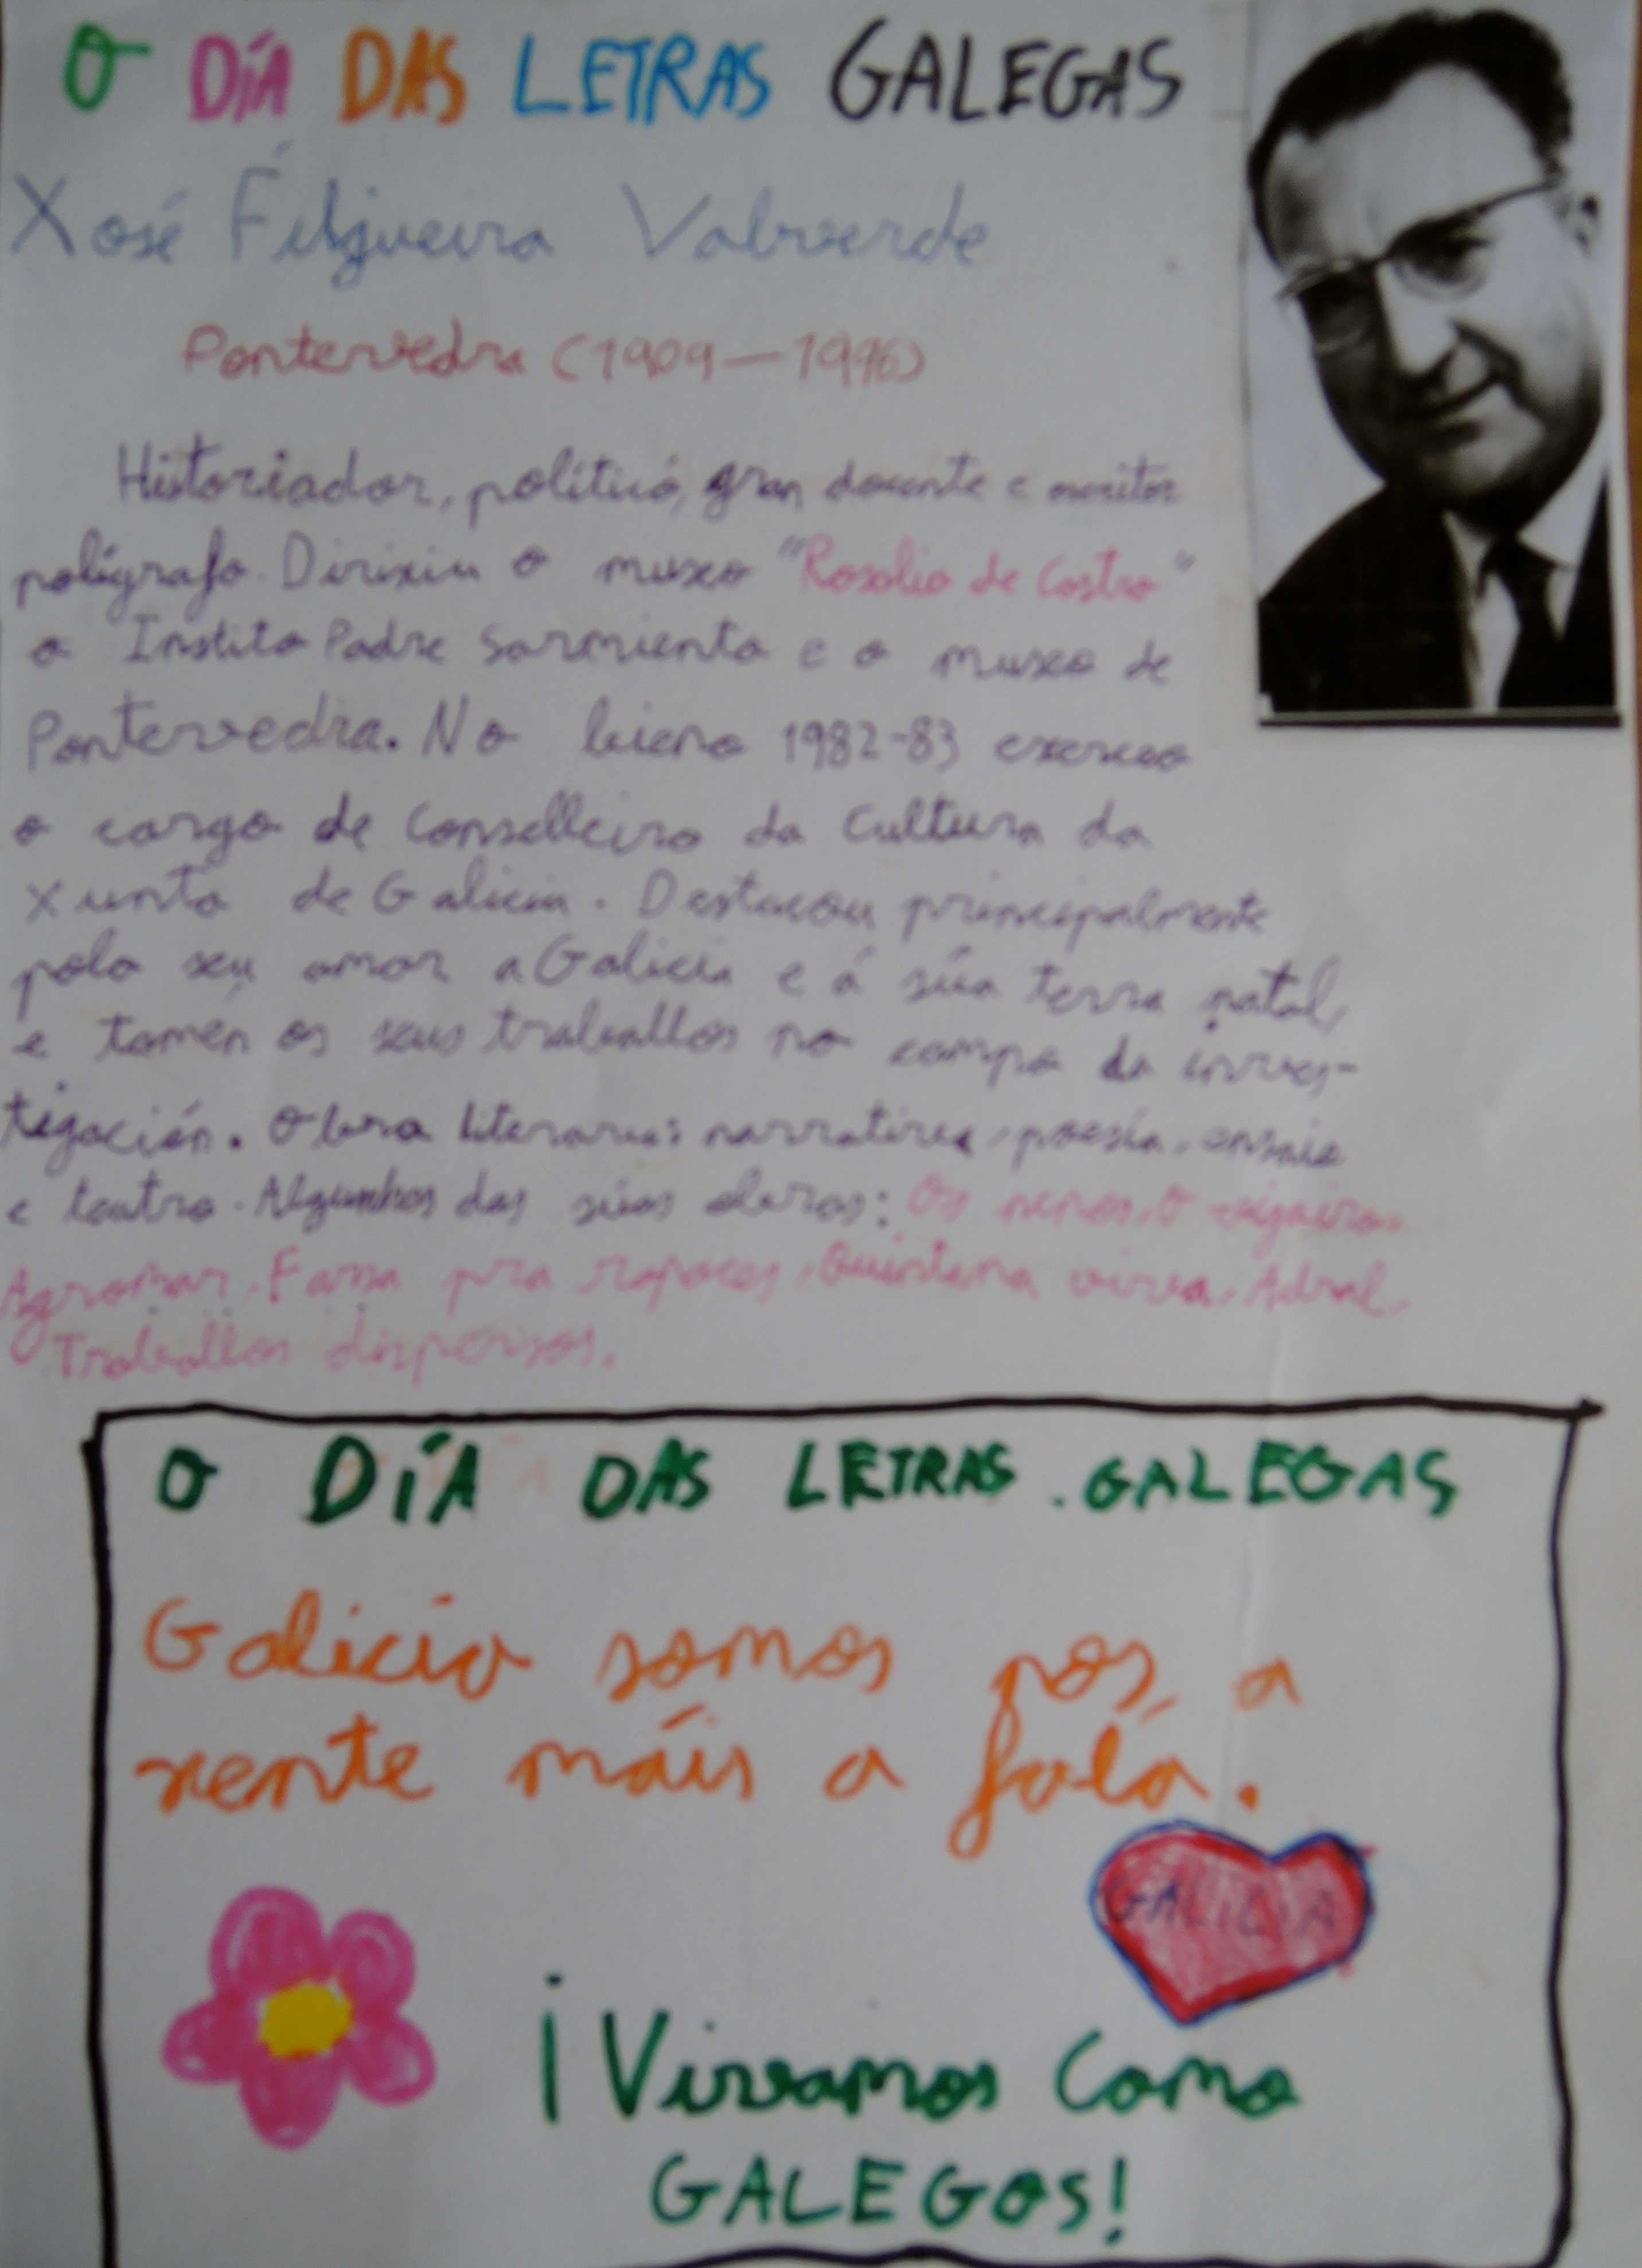 O DÍA DAS LETRAS GALEGAS
Xosé Filgueira Valverde
Pontevedra (1909-1996)
Historiador, político, gran docente e escritor
polígrafo. Dirixiu o museo "Rosalia de Castro"
o Instito Padre Sarmiento e o museo de
Pontevedra. No bieno 1982-83 exerceo
o cargo de Conselleiro da Cultura da
Xunta de Galicia. Destacou principalmente
polo seu amor a Galicia e á súa terra natal,
e tamén os seus traballos no campo da inves-
tigación. Obra literaria: narrativa, poesía, ensaio
e teatro. Algunhas das súas obras: Os nenos, O vigairo,
Agromar, Farsa pra rapaces, Quintana viva, Adral,
Traballos dispersos.
O DÍA DAS LETRAS GALEGAS
Galicia somos nos, a
xente máis a fala.
GALICIA
¡Vivamos como
GALEGOS!